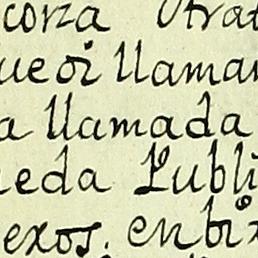 corza Otrat
ueoi llaman
a llamada
ueda Publi
exos. en bi